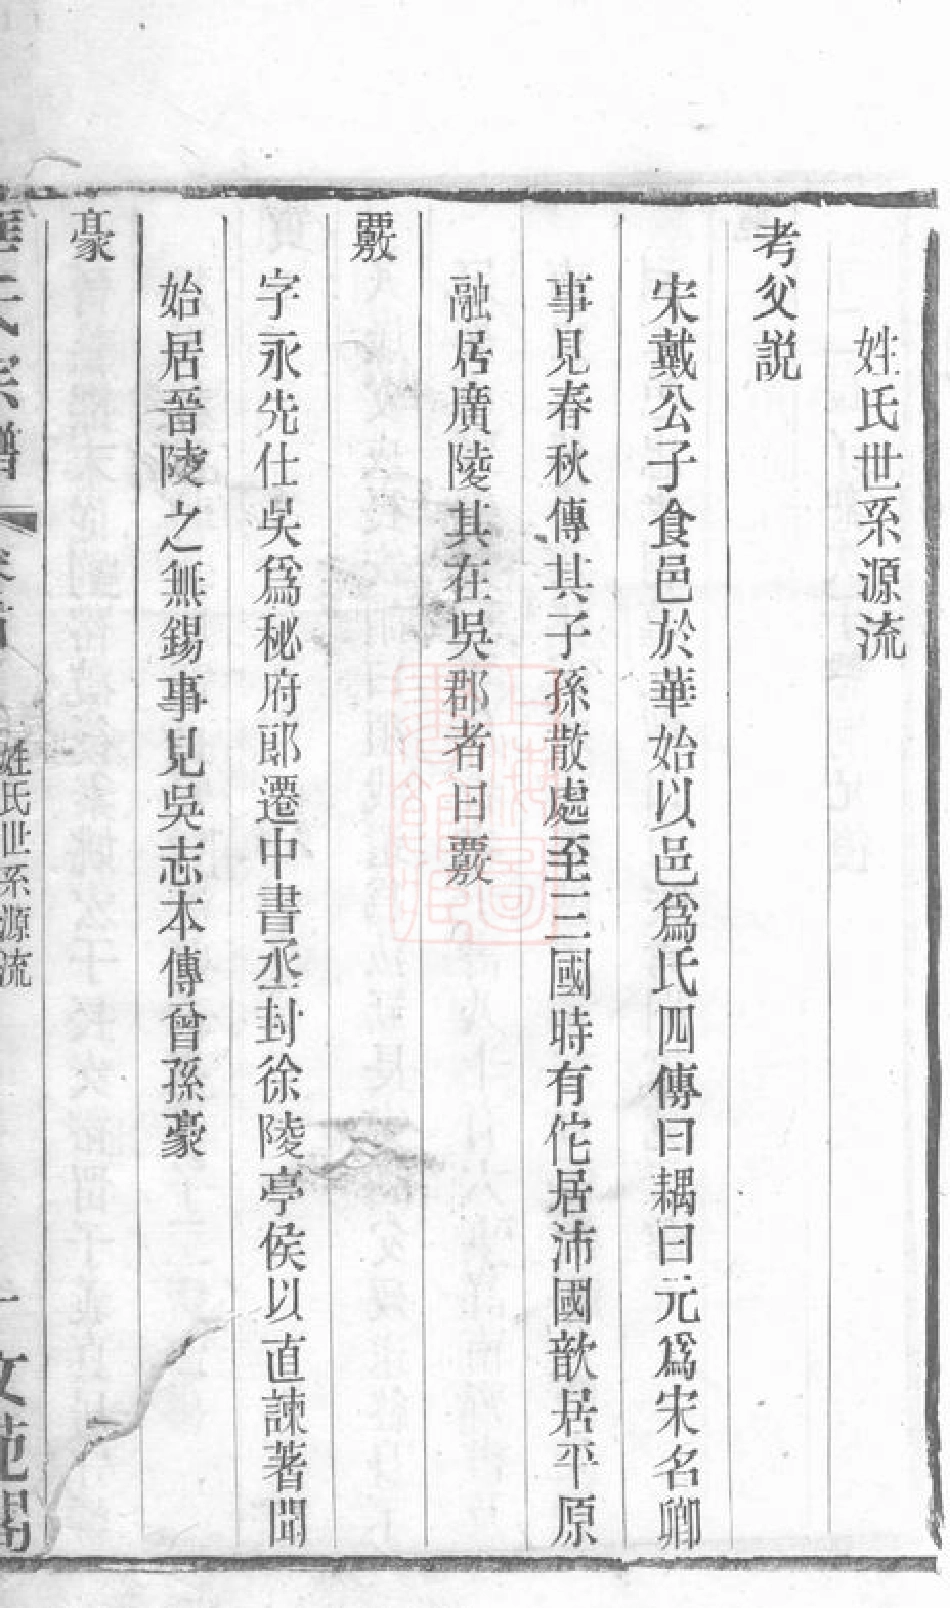 姓氏世系源流
考父説
宋戴公子食邑於華始以邑爲氏四傳曰耦曰元爲宋名卿
事見春秋傳其子孫散處至三國時有佗居沛國歆居平原
融居廣陵其在吳郡者曰覈
覈
字永先仕吳爲秘府郎遷中書丞封徐陵亭侯以直諫著聞
始居晉陵之無錫事見吳志本傳曾孫豪
豪
華氏宗譜
姓氏世系源流
一
文苑閣